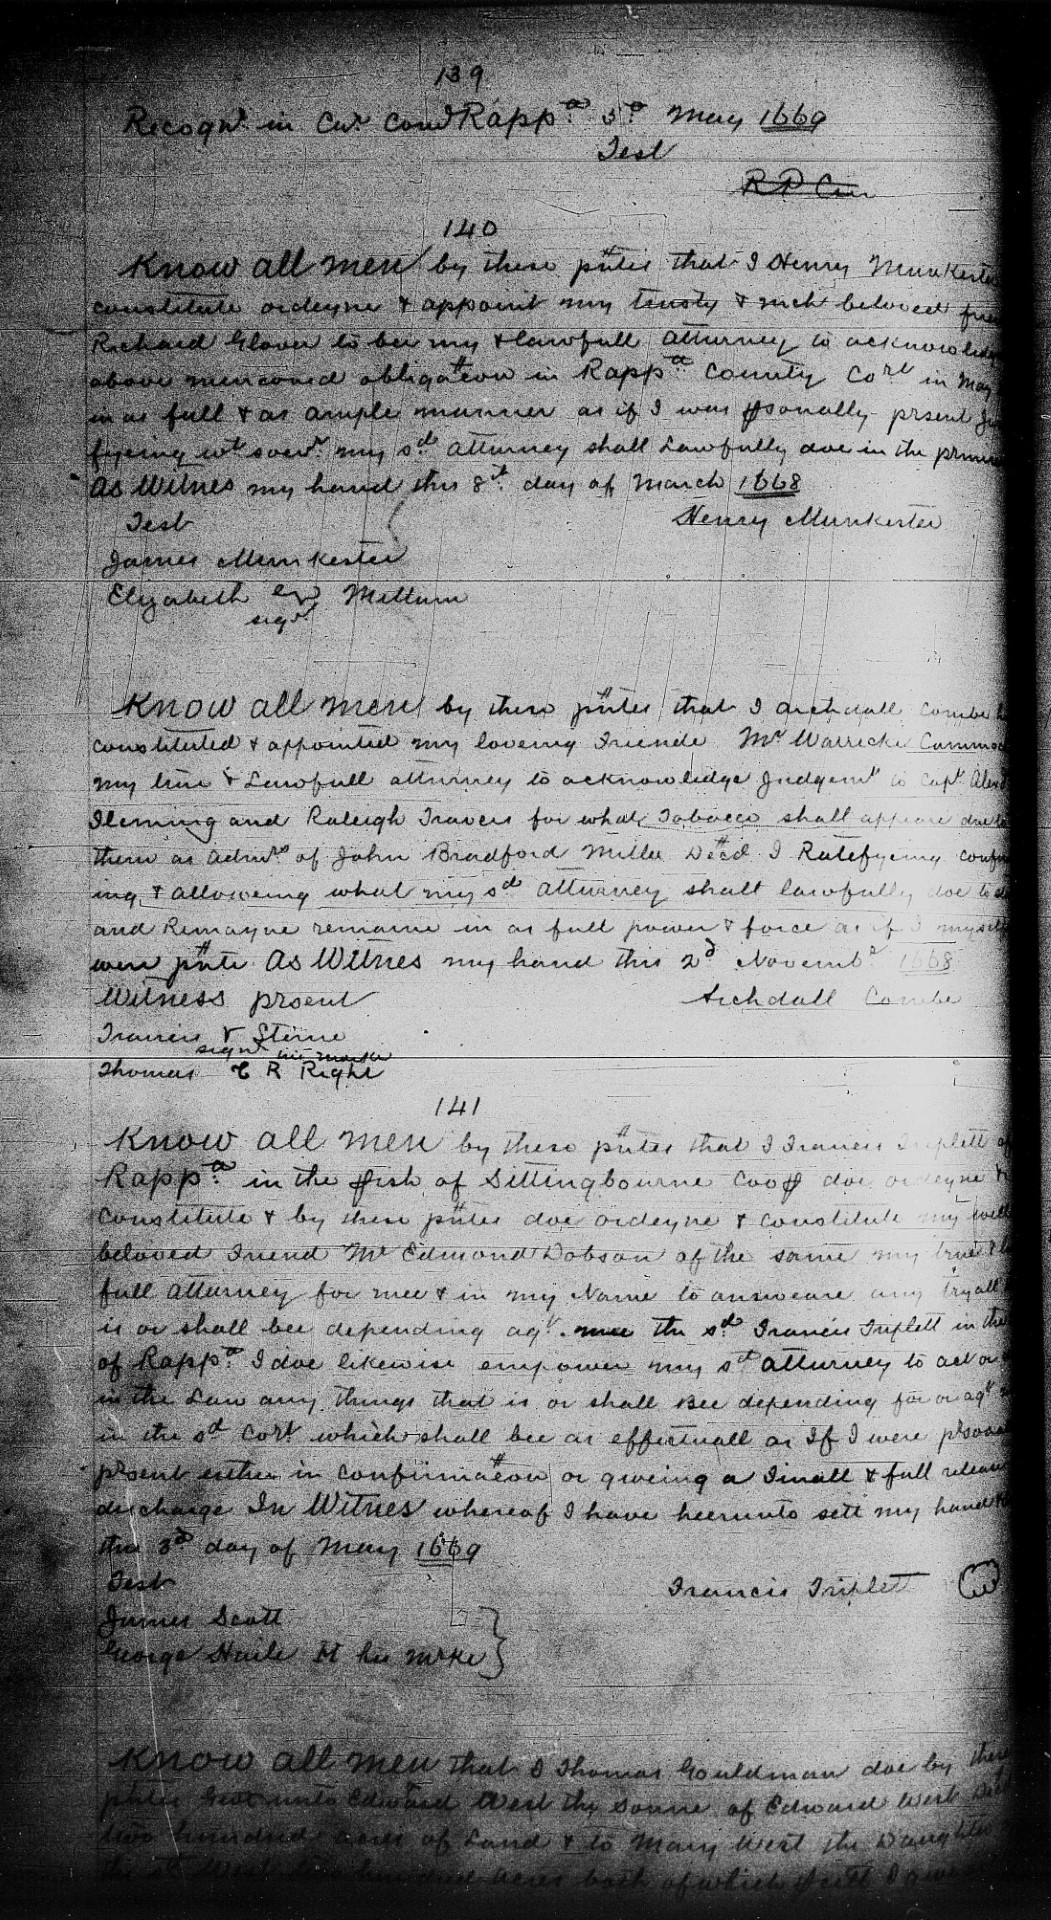 139
Recognr. in Cur. Comd Rappa. 5o May 1669
Test
R P Cur
140
Know all men by these pntes that I Henry Munkester
constitute ordeyne & appoint my trusty & much beloved
Richard Glover to bee my & lawfull attturney to acknowledge
above menconed obligateon in Rappa. County Cort in May
in as full & as ample manner as if I was psonally prsent
fyeing wt soevr. my sd atturney shall Lawfully doe in the
As Witnes my hand this 8th. day of March 1668
Test Henry Munkester
James Munkester
Elizabeth Mettum
signr.
Know all men by these pntes that I Archdall Combe
constituted & appointed my loveing Friende Mr Warricke
my true & Lawfull atturney to acknowledge Judgemt to Capt. Alexd
Fleming and Raleigh Travers for what Tobacco shall appeare due to
them as Admrs of John Bradford Millr Decd. I Ratefyeing
ing & alloweing what my sd atturney shall lawfully doe
and Remayne remaine in as full power & force as if I myself
were pnte As Witnes my hand this 2d Novembr 1668
Witness prsent Archdall Combe
Francis Sterne
signr his marke
Thomas R Right
141
Know all men by these pntes that I Francis Triplett of
Rappa. in the pish of Sittingbourne doe ordeyne &
Constitute & by these pntes doe ordeyne & constitute my well
beloved Friend Mr Edmond Dobson of the same my true &
full atturney for mee & in my Name to answeare any tryall
is or shall bee depending agt. mee the sd Francis Triplett in the
of Rappa. I doe likewise empower my sd atturney to act
in the Law any things that is or shall Bee depending for or agt
in the sd Cort which shall bee as effectuall as If I were
prsent either in confirmateon or giveing a Finall & full
discharge In Witnes whereof I have heerunto sett my hand
this 3d day of May 1669
Test Francis Triplett
James Scott
George Haile H his mrke
Know all men that I Thomas Gouldman doe by these
pntes Give unto Edward West the Sonne of Edward West
two hundred acres of Land & to Mary West the Daughter
the sd West two hundred acres both of which